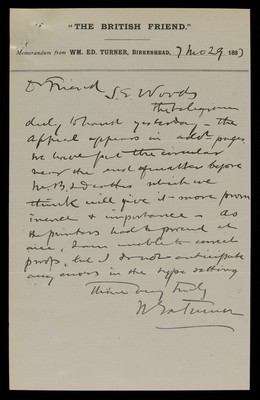 "THE BRITISH FRIEND."
Memorandum from WM. ED. TURNER, BIRKENHEAD, 7 Mo 29 1883
Dr Friend
S. E. Woods
The telegram
duly to hand yesterday, – the
Appeal appears in advt. pages.
We have put the circular
near the end of matter before
M., B., & Deaths which we
think will give it more prom
inence & importance – As
the printers had to proceed at
once, I am unable to correct
proof, but I do not anticipate
any errors in the type setting
Thine very truly
W Ed Turner